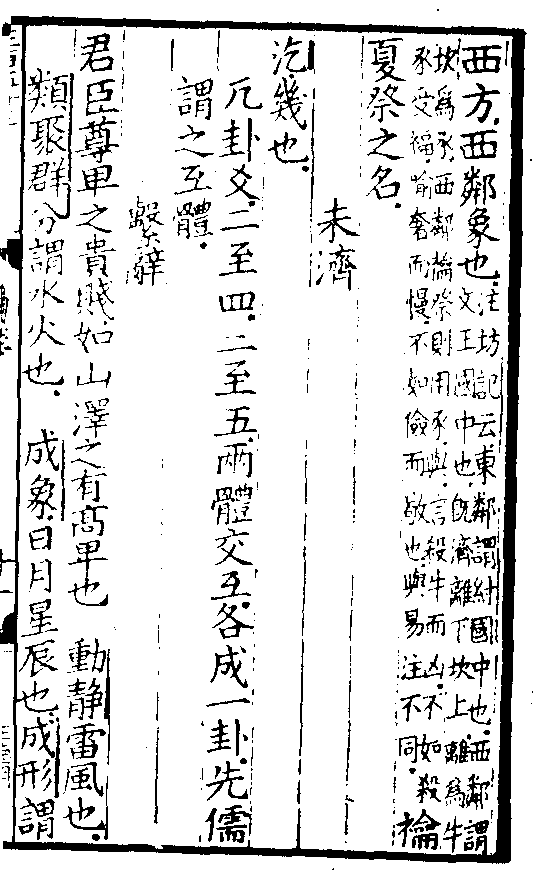 西方西鄰象也。注坊記云東鄰謂紂國中也。西鄰謂
文王國中也。旣濟離下坎上。離爲牛
坎爲豕。西鄰禴祭則用豕與。言殺牛而凶。不如殺
豕受福。喻奢而慢。不如儉而敬也。與易注不同。 禴
夏祭之名。
未濟
汔幾也。
凡卦爻。二至四。三至五。兩體交互。各成一卦。先儒
謂之互體。
繫辭
君臣尊卑之貴賤。如山澤之有高卑也 動靜雷風也。
類聚群分謂水火也。 成象。日月星辰也。成形謂